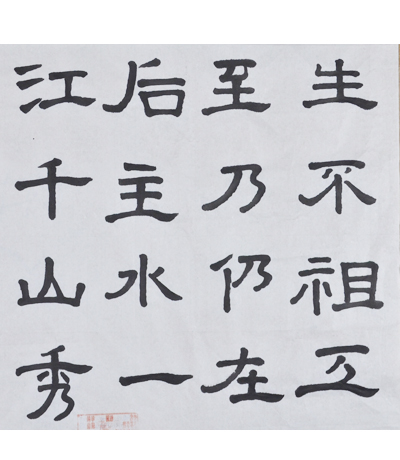 生不祖
至乃仍在
后主水一
江千山秀